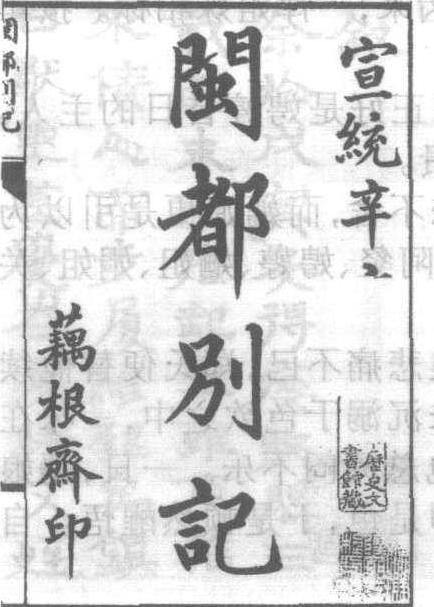 宣統辛
閩都別記
歷史文
書館藏
藕根齋印
閩都別記